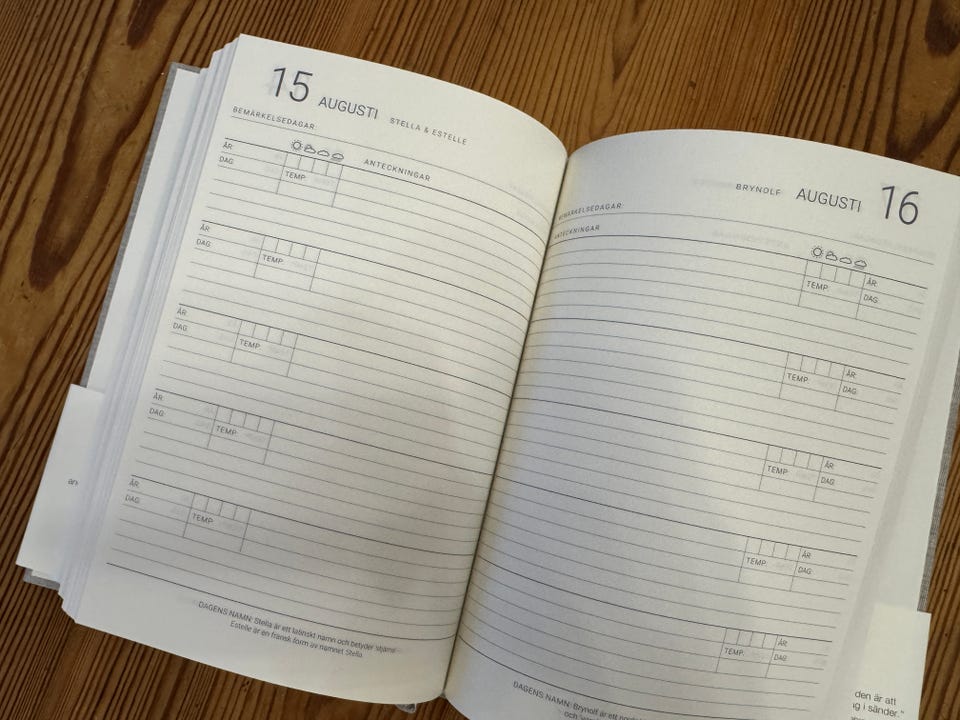 15 AUGUSTI STELLA & ESTELLE
BEMÄRKELSEDAGAR:
ÅR: ANTECKNINGAR
DAG: TEMP:
ÅR:
DAG: TEMP:
ÅR:
DAG: TEMP:
ÅR:
DAG: TEMP:
ÅR:
DAG: TEMP:
DAGENS NAMN: Stella är ett latinskt namn och betyder 'stjärna'.
Estelle är en fransk form av namnet Stella.
an
BRYNOLF AUGUSTI 16
BEMÄRKELSEDAGAR:
ANTECKNINGAR
ÅR:
TEMP: DAG:
ÅR:
TEMP: DAG:
ÅR:
TEMP: DAG:
ÅR:
TEMP: DAG:
ÅR:
TEMP: DAG:
DAGENS NAMN: Brynolf är ett
och
den är att
g i sänder."